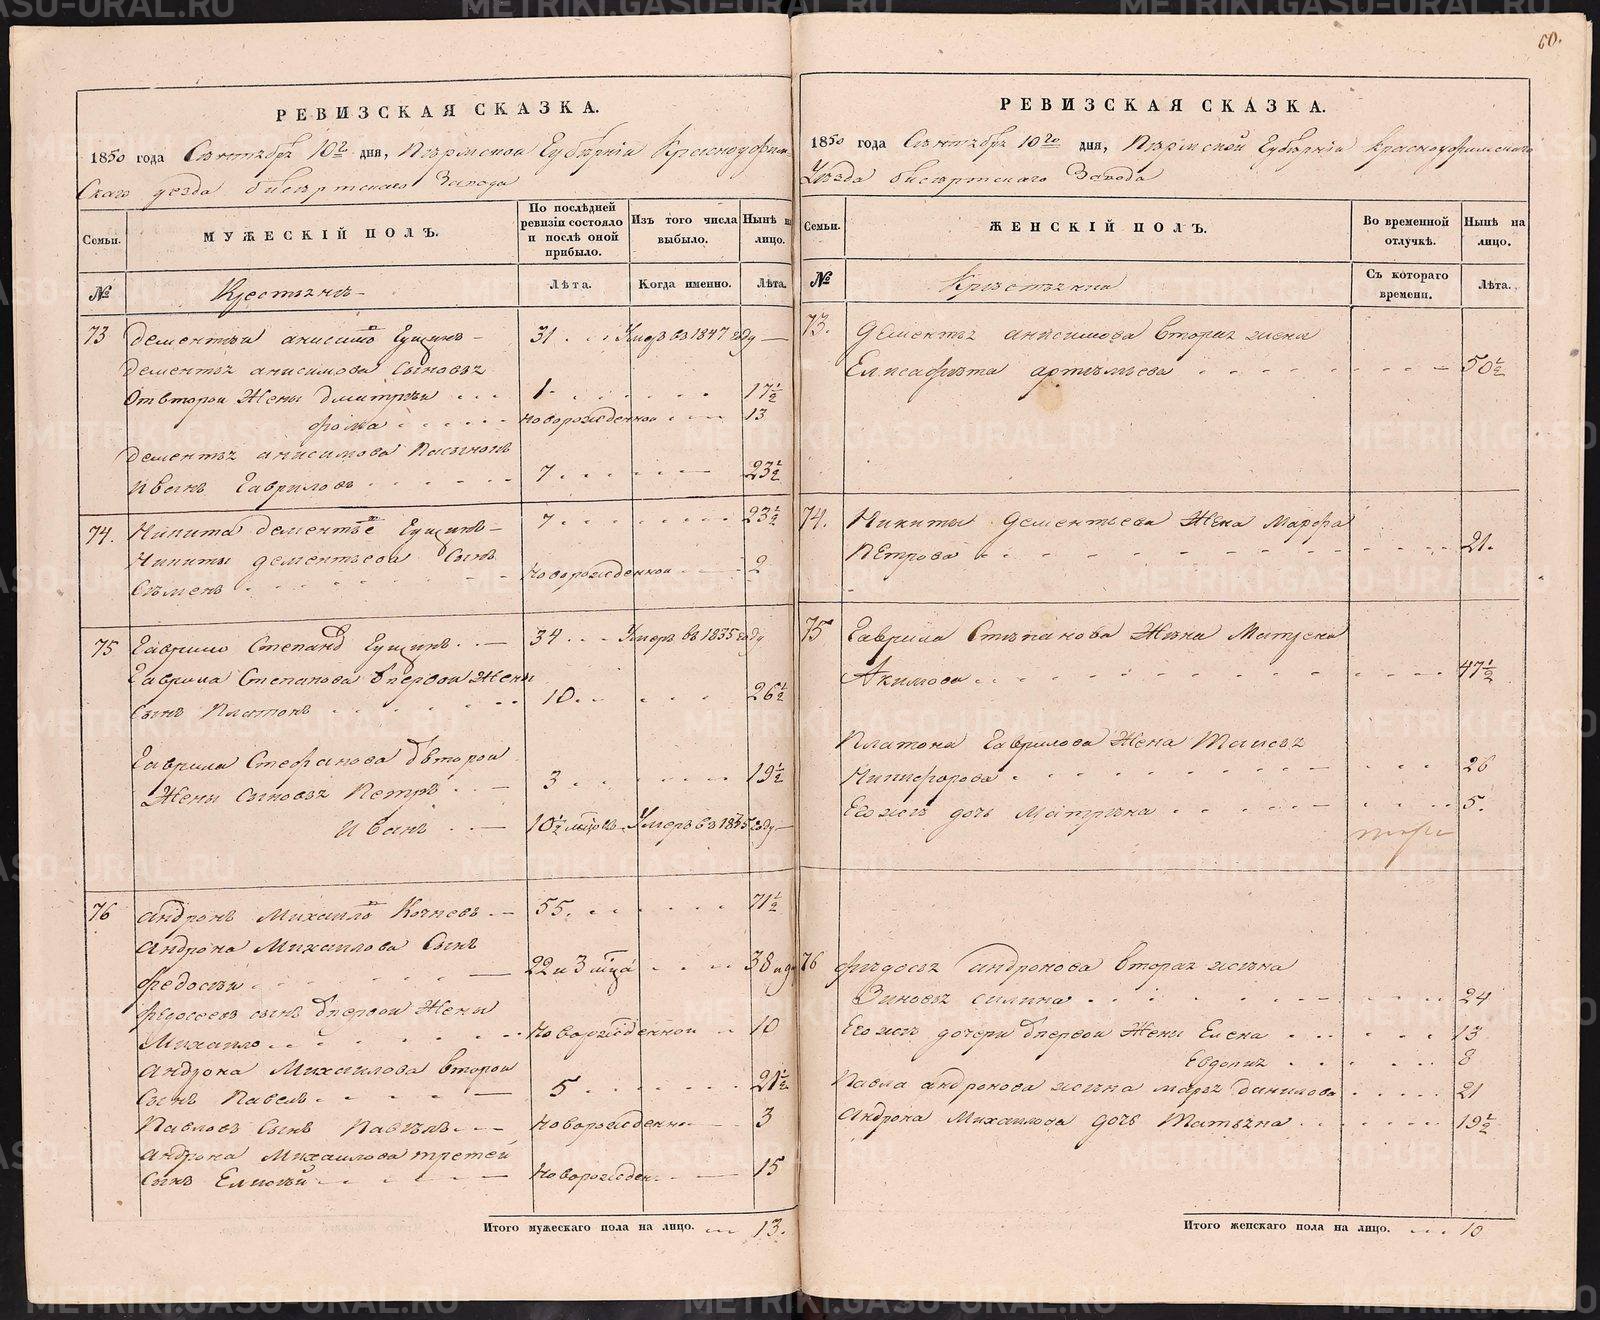 60.
РЕВИЗСКАЯ СКАЗКА.
1850 года Сентября 10го дня, Пермской Губернiи Красноуфим-
скаго уезда бисертскаго Завода
Семьи.
МУЖЕСКIЙ ПОЛЪ.
По послѣдней ревизiи состояло и послѣ оной прибыло.
Изъ того числа выбыло.
Нынѣ на лицо.
№
Крестьяне
Лѣта.
Когда именно.
Лѣта.
73 Дементьи анисимо Ермина 31 Умеръ въ 1847 году
Дементья анисимова Сыновья
От второи Жены Дмитреи 1 17½
фома новорожденнои 13
Дементья анисимова Пасынокъ
Иванъ Гавриловъ 7 23½
74. Никита дементье 7 23½
Никиты дементьева Сынъ
Семенъ Новорожденнои 2
75 Гаврило Степано 34 Умеръ въ 1835 году
Гаврила Степанова б первои Жены
Сынъ Платонъ 10 26½
Гаврила Стефанова б второи
Жены Сыновья Петръ 3 19½
Иванъ 10½ мцовъ Умеръ въ 1835 году
76 андронъ Михаило Кочневъ 55. 71½
Андрона Михаилова Сынъ
Федосеи 22 и 3 мца 38 и 9
Федосеевъ сынъ б первои Жены
Михаило Новорожденнои 10
Андрона Михаилова второи
Сынъ Павелъ 5 21½
Павловъ Сынъ Павелъ Новорожденно 3
Андрона Михаилова третей
Сынъ Елисей Новорожден. 15
Итого мужескаго пола на лицо. 13.
РЕВИЗСКАЯ СКАЗКА.
1850 года Сентября 10го дня, Пермской Губернiи Красноуфимскаго
Уезда бисертскаго Завода
Семьи.
ЖЕНСКIЙ ПОЛЪ.
Во временной отлучкѣ.
Нынѣ на лицо.
№
Крестьянки
Съ котораго времени.
Лѣта.
73. Дементья анисимова вторая жена
Елисафета артемьева 50½
74. Никиты Дементьева Жена Марфа
Петрова 21.
75 Гаврила Степанова Жена Матрена
Акимова 47½
Платона Гаврилова Жена Таисья
Никифорова 26
Его же дочь Матрена 5.
76 Федосья андронова вторая жена
Зиновья силина 24
Его же дочери б первои Жены Елена 13
Евдокия 8
Павла андронова жена марья данилова 21
Андрона Михаилова дочь Татьяна 19½
Итого женскаго пола на лицо. 10
METRIKI.GASO-URAL.RU